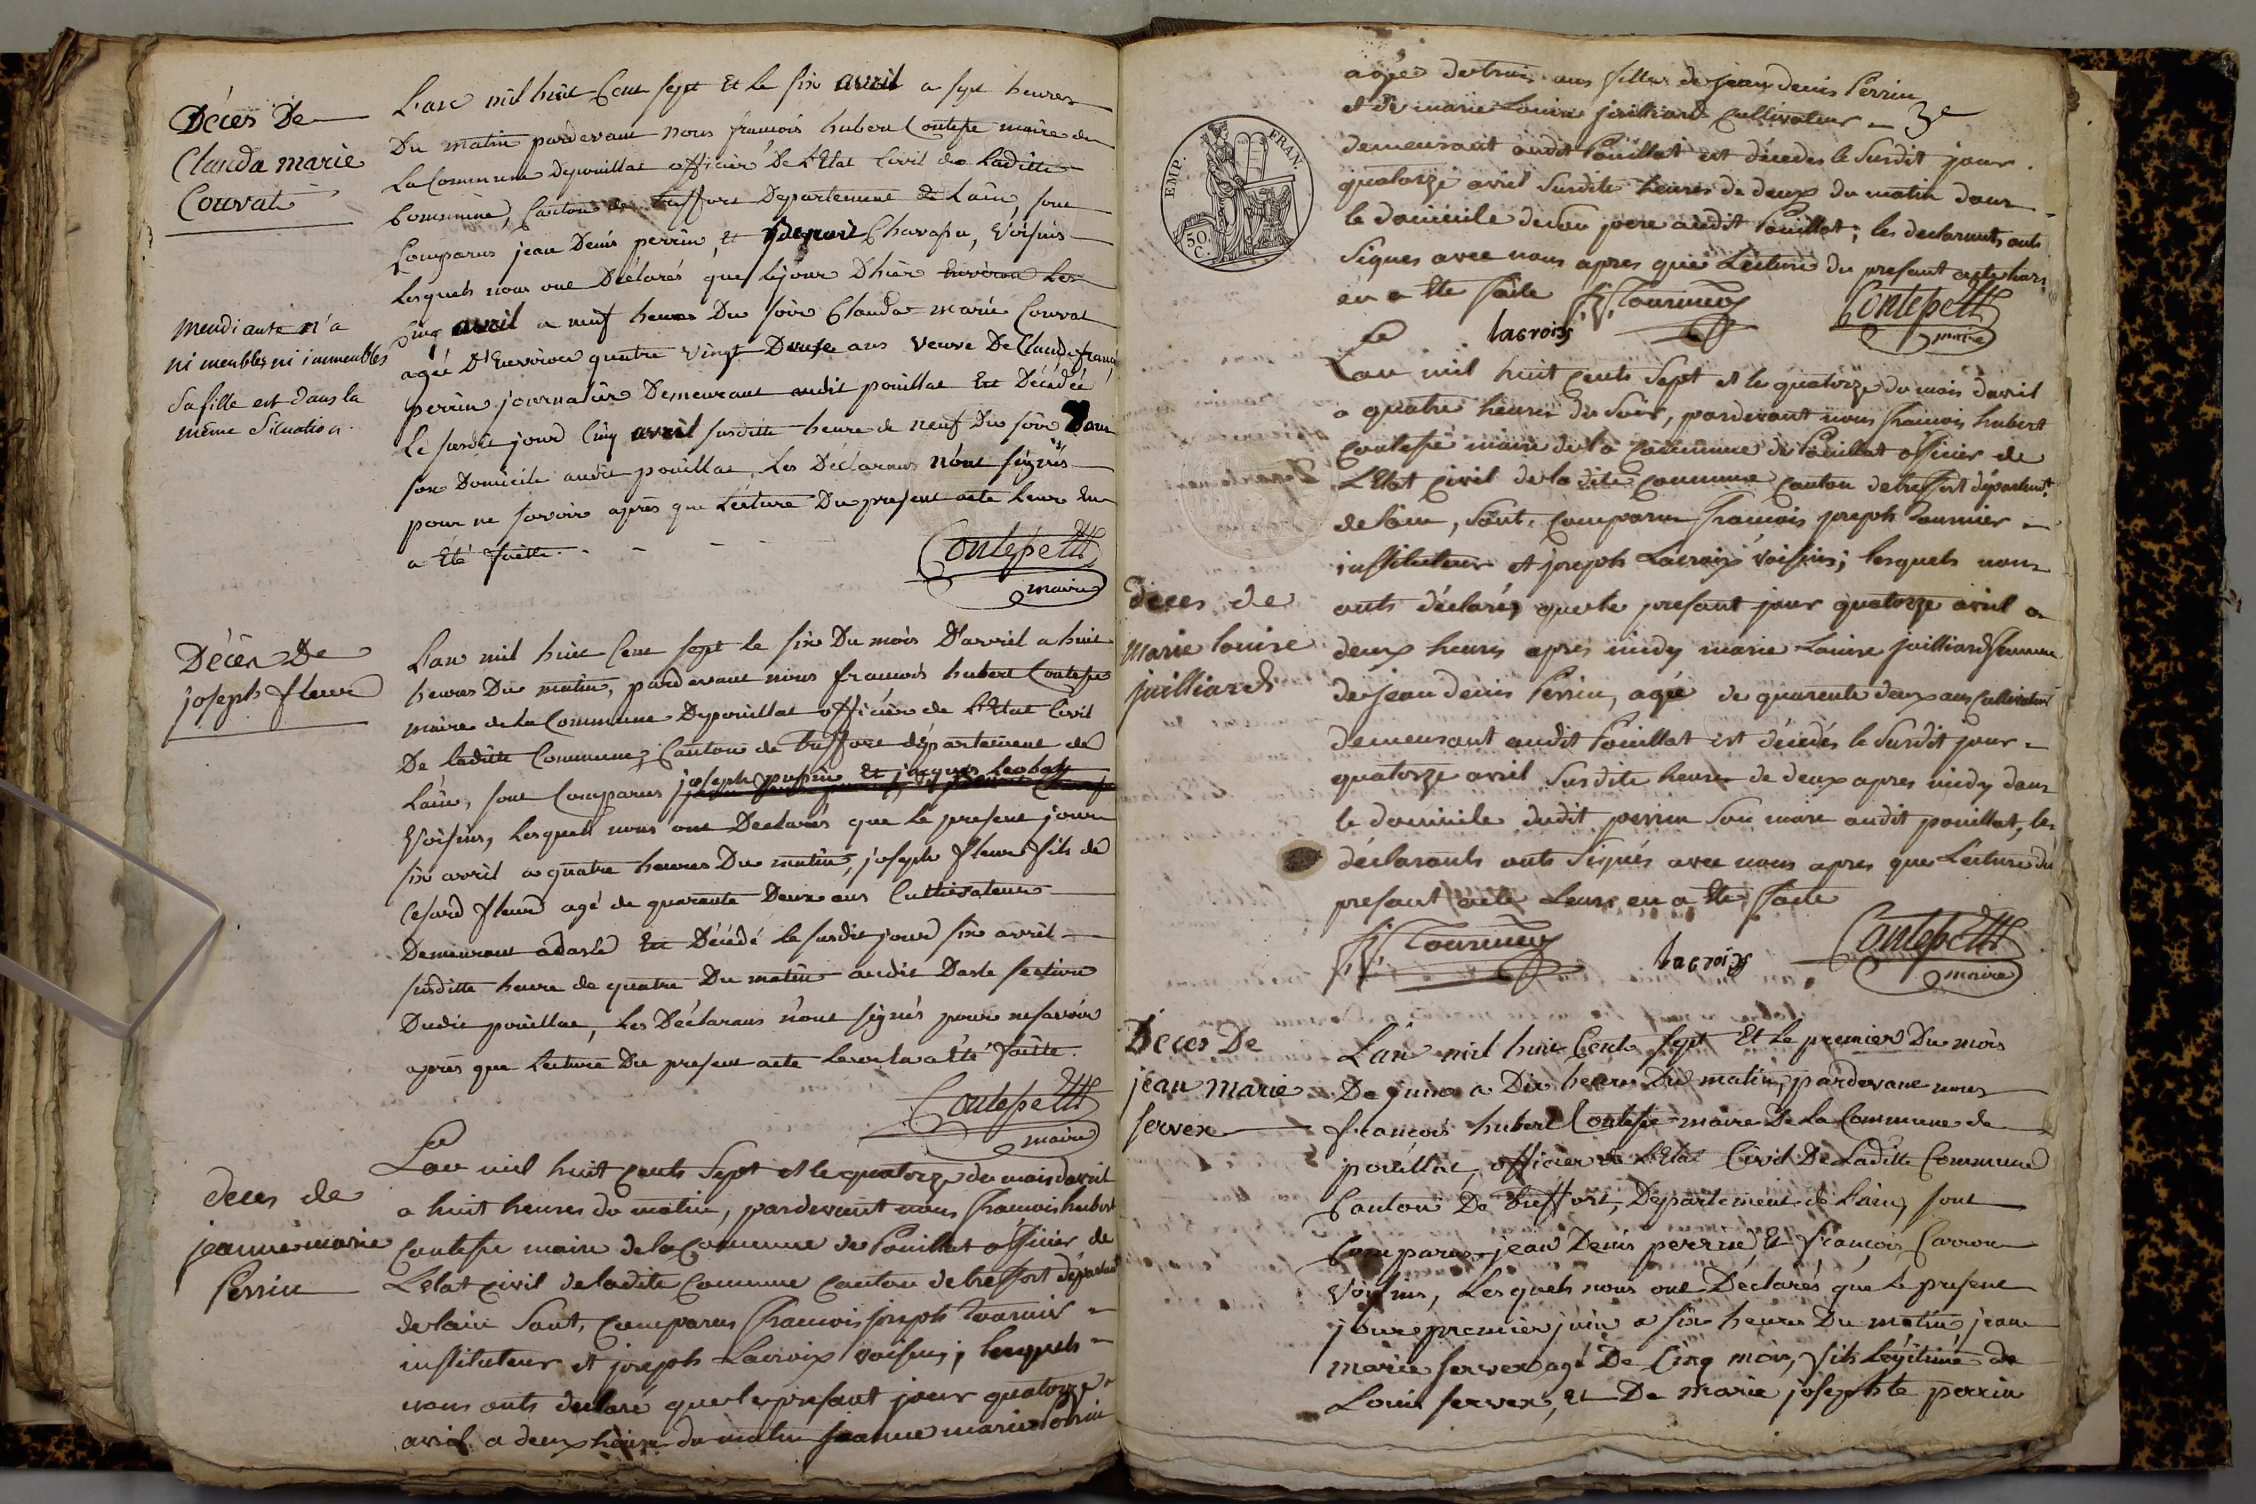 Décès De
Clauda marie
Couvat
L'an mil huit Cent sept Et le six avril a sept heures
Du matin pardevant nous francois hubert Contesse maire de
La Commune Depouillat officier De L'Etat Civil de Laditte
Commune, Canton de treffort Departement de Lain, sont
Comparus jean Denis perrin, Et Voisins
Lesquels nous ont Déclarés que lejour D'hier Environ Les
Cinq avril a neuf heures Du soir Clauda marie Couvat
agée D'Environ quatre Vingt Douse ans Veuve De Claude françois
perrin journalier Demeurant audit pouillat Est Décédée
Le susdit jour Cinq avril susditte heure de neuf Du soir Dans
son Domicile audit pouillat, Les Déclarans n'ont signés
pour ne savoir après que Lecture Du present acte Leur En
a Eté faitte.
Contesse
maire
mendiante n'a
ni meubles ni immeubles
Sa fille est dans la
même Situation.
Décès De
joseph fleur
L'an mil huit Cent sept le six Du mois D'avril a huit
heures Du matin, pardevant nous francois hubert Contesse
maire de La Commune Depouillat officier de L'Etat Civil
De laditte Commune, Canton de treffort département de
Lain, sont Comparus joseph pupin Et jacques
Voisins, Lesquels nous ont Declarés que Le present jour
six avril a quatre heures Du matin, joseph fleur fils de
Cesard fleur agé de quarante Deux ans Cultivateur
Demeurant adasle Est Décédé le susdit jour six avril
susditte heure de quatre Du matin audit Dasle section
Dudit pouillat, Les Déclarans n'ont signés pour ne savoir
après que Lecture Du present acte Leur En a Eté faitte.
Contesse
maire
deces de
jeanne marie
Perrin
L'an mil huit cents Sept et le quatorze du mois davril
a huit heures du matin, pardevant nous francois hubert
Contesse maire de la Commune de Pouillat officier de
L'Etat Civil de ladite Commune canton de treffort départemt
de lain Sont, comparus francois joseph tournier
instituteur et joseph Lacroix voisins; lesquels
nous onts declaré que le présant jour quatorze
avril a deux heures du matin jeanne marie Perrin
agée de trois ans fille de jean denis Perrin
et de marie Louise juilliard Cultivateur
3e
EMP. FRAN.
50
C.
demeurant audit Pouillat est décedes le Susdit jour
quatorze avril Susdite heures de deux du matin dans
le domicile de son pere audit Pouillat; les declarants onts
Signes avec nous apres que Lecture du présant acte leurs
en a Ete faite
lacroix
Contesse
maire
L'an mil huit cents Sept et le quatorze du mois davril
a quatre heures du Soir, pardevant nous francois hubert
contesse maire de la commune de Pouillat officier de
L'Etat Civil de la dite commune canton de treffort département
de lain, Sont, comparus francois joseph tournier
instituteur et joseph Lacroix voisins; lesquels nous
onts déclarés que le présant jour quatorze avril a
deces de
marie louise
juilliard
deux heures apres midy marie Louise juilliard femme
de jean denis Perrin, agée de quarente deux ans Cultivateur
demeurant audit Pouillat est décedés le Susdit jour
quatorze avril Susdite heure de deux apres midy dans
le domicile dudit perrin Son mari audit pouillat, les
déclarants onts Signés avec nous apres que Lecture du
présant acte Leurs en a Ete faite
lacroix
Contesse
maire
Décès De
jean marie
servex
L'an mil huit Cents sept Et Le premier Du mois
De juin a Dix heures Du matin, pardevant nous
francois hubert Contesse maire De La Commune de
pouillat, officier de L'Etat Civil De Laditte Commune
Canton De treffort, Departement de Lain, sont
Comparus jean Denis perrin, Et francois Carron
Voisins, Lesquels nous ont Déclarés que Le present
jour premier juin a six heures Du matin jean
marie servex agé De Cinq mois, fils Légitime de
Louis servex, Et De marie josephte perrin